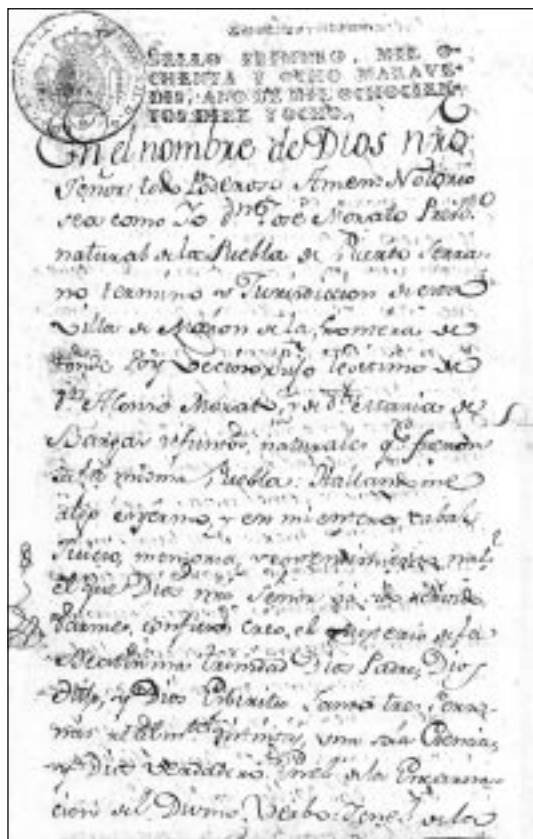 SELLO PRIMERO, MIL O-
CHENTA Y OCHO MARAVE-
DIS, AÑO DE MIL OCHOCIEN-
TOS DIEZ Y OCHO.
En el nombre de Dios nro
Señor todo Poderoso Amen: Notorio
sea como Yo dn José Morato Presbo
natural de la Puebla de Puerto Serra-
no termino y Jurisdiccion de esta
Villa de Morón de la frontera de
donde soy Vecino hijo legitimo de
dn Alonso Morato, y de da Maria de
Bargas difuntos, naturales qe fueron
de la misma Puebla: Hallandome
algo enfermo, y en mi entero, cabal
Juicio, memoria, y entendimiento natl
el que Dios nro Señor ha sido servido
darme, confieso creo, el Misterio de la
Beatisima trinidad Dios Padre, Dios
Hijo, y Dios Espiritu Santo tres Perso-
nas realmte distintas, una sola Esencia,
y Dios verdadero: En el de la Encarna-
cion del Divino Verbo: En el de la